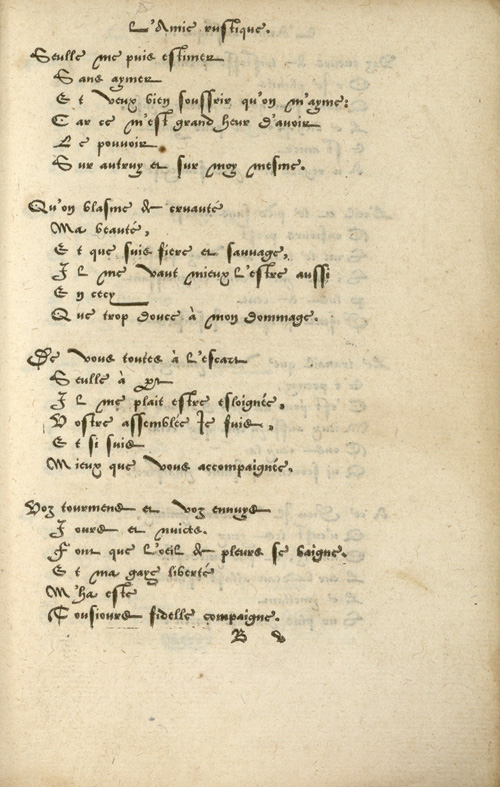 L'Amie rustique.
Seulle me puis estimer
Sans aymer
Et veux bien souffrir qu'on m'ayme:
Car ce m'est grand heur d'avoir
Le pouvoir
Sur autruy et sur moy mesme.
Qu'on blasme de cruauté
Ma beauté,
Et que suis fiere et sauvage,
Il me vaut mieux l'estre aussi
En cecy
Que trop douce à mon dommage.
De vous toutes à l'escart
Seulle à part
Il me plait estre esloignée,
Vostre assemblée Je fuis,
Et si suis
Mieux que vous accompaignée.
Voz tourmens et voz ennuys
Jours et nuicts.
Font que l'oeil de pleurs se baigne.
Et ma gaye liberté
M'ha esté
Tousiours fidelle compaigne.
B v